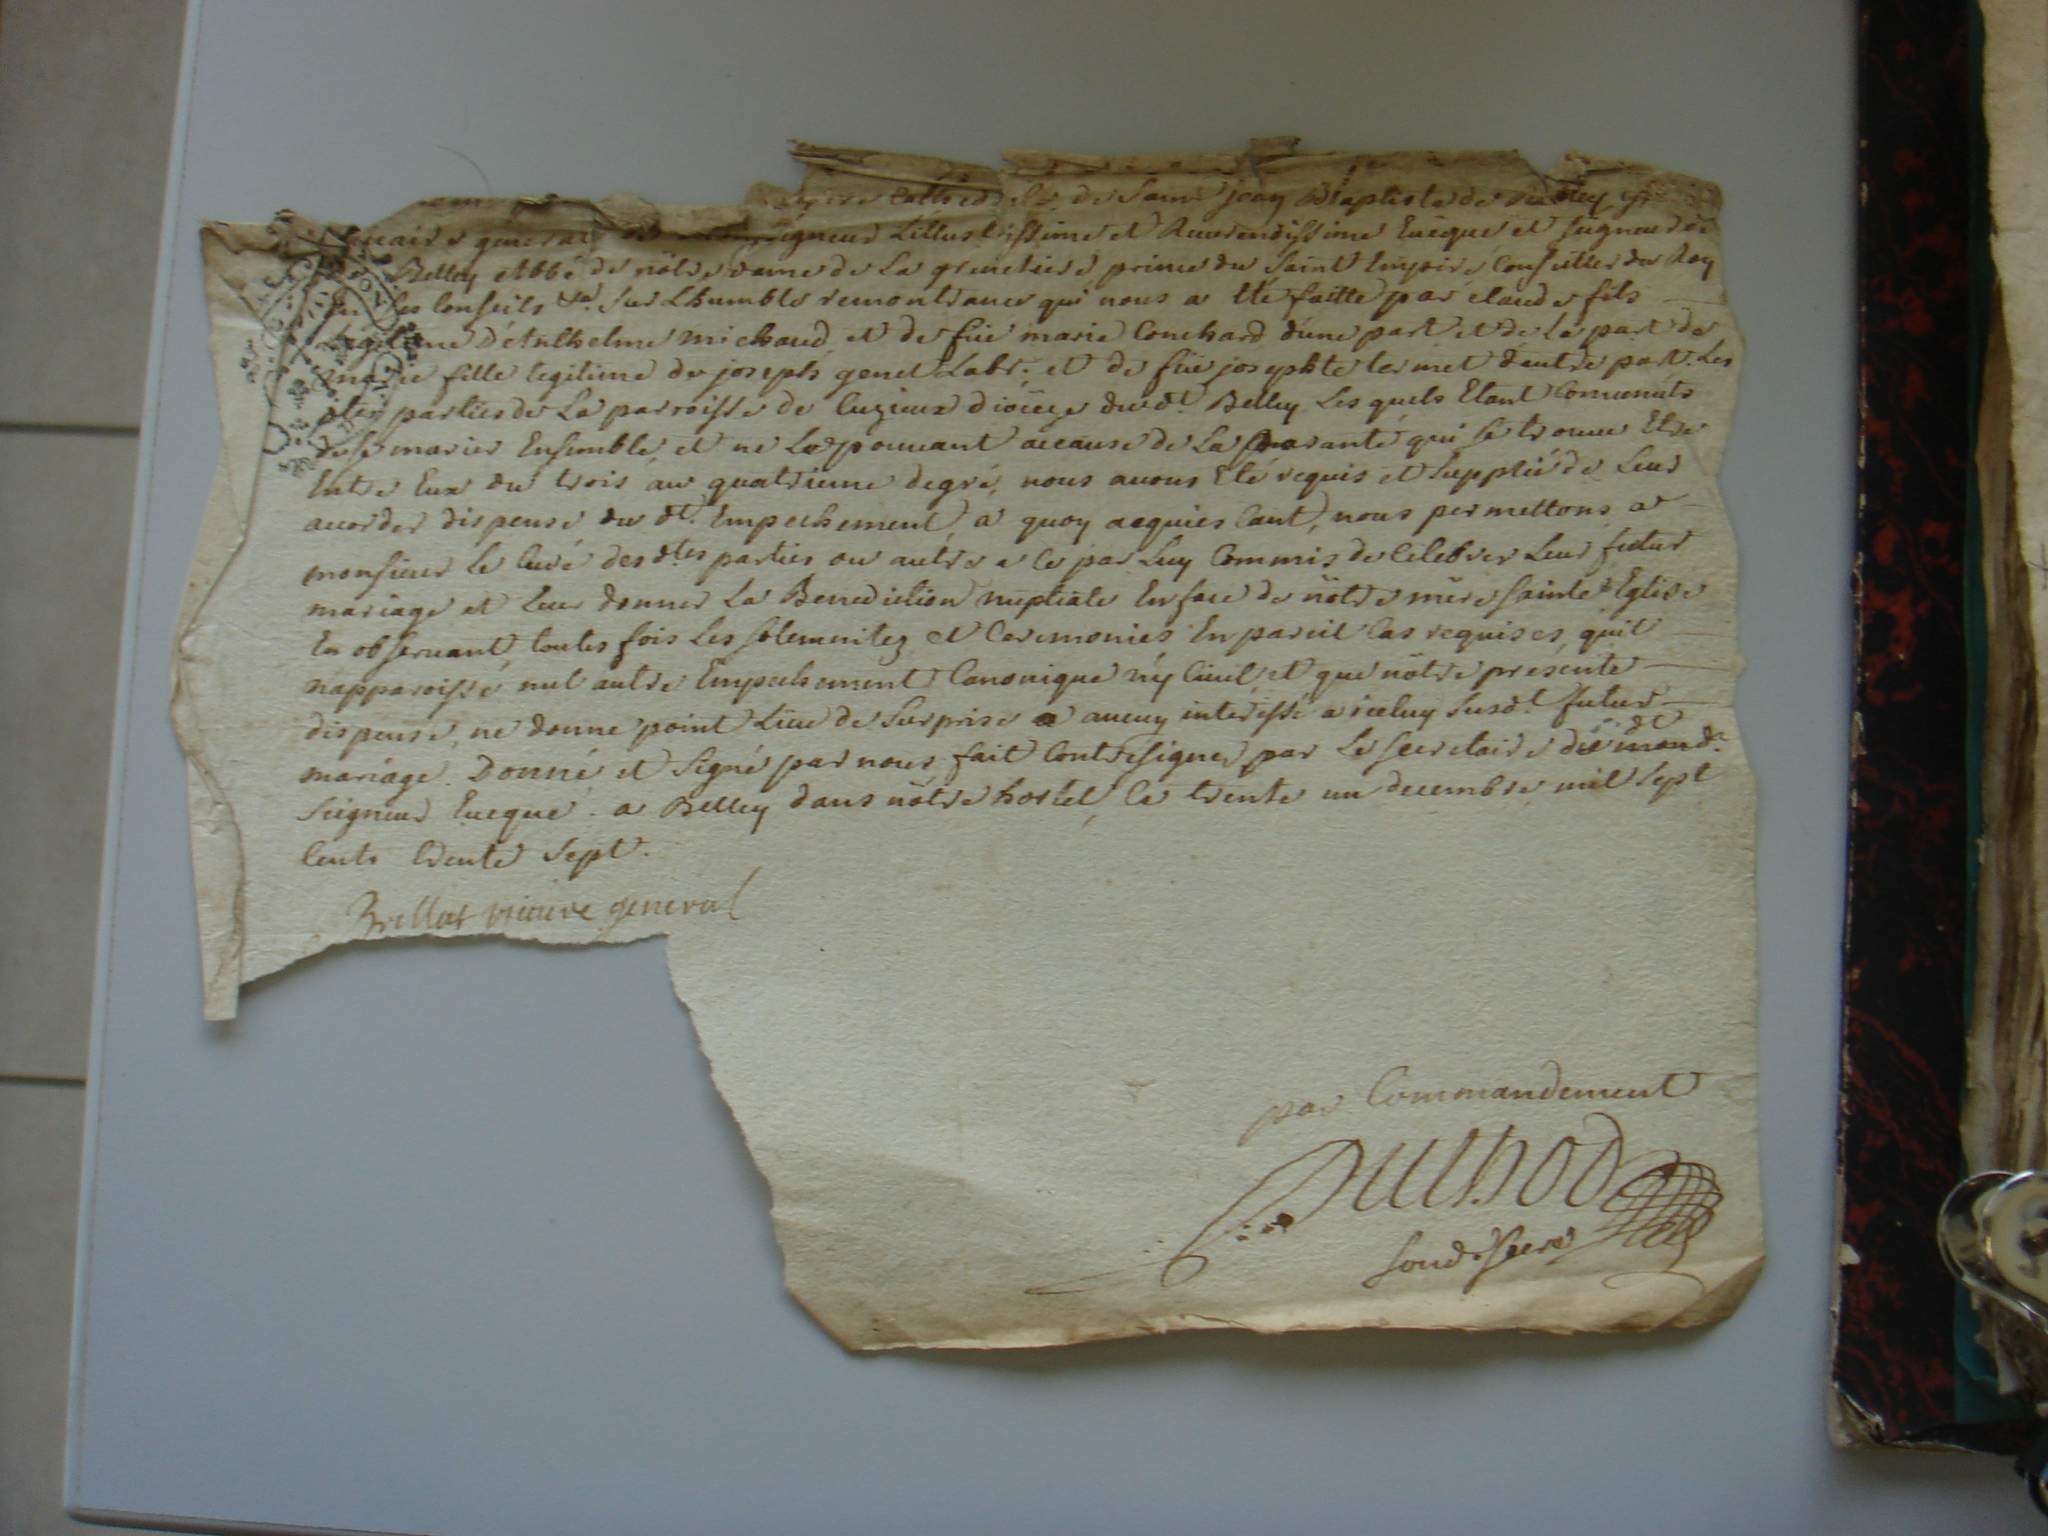 cathedrale de Saint jean Baptiste de Belley
vicaire general de monseigneur Lillustrissime et Reverendissime Eveque et seigneur de
Belley Abbé de nôtre dame de La grenetiere prince du saint Empire Conseiller du Roy
en ses Conseils &a. sur Lhumble remontrance qui nous a ete faitte par claude fils
Legitime d'Anthelme michaud et de füe marie Conchard dune part et de La part de
marie fille legitime de joseph genet Labr. et de füe josephte termet dautre part. Les
dtes parties de La parroisse de Cuzieux diocèze dud.t Belley Lesquels Etant Convenuts
de se marier Ensemble, et ne Le pouvant accause de La Paranté qui se trouve Etre
Entre Eux du trois au quatrieme degré, nous avons Eté requis et supplié de Leur
accorder dispense dud.t Empechement, a quoy acquiescant, nous permettons a
monsieur Le Curé des d.tes parties ou autre a Ce par Luy Commis de Celebrer Leur futur
mariage et Leur donner La Benediction nuptiale En face de nôtre mère sainte Eglise
En observant toutes fois Les solemnitez et Ceremonies En pareil Cas requises, quil
napparoisse nul autre Empechement Canonique ny Civil, et que nôtre presente
dispense, ne donne point Lieu de surprise a aucuy interessé a iceluy susd.t futur
mariage. Donné et signé par nous fait Contresigner par Le secretaire de mond.t
seigneur Eveque. a Belley dans nôtre hostel, Ce trente un decembre mil sept
Cents trente sept.
Brillat vicaire general
par Commandement
Duthod